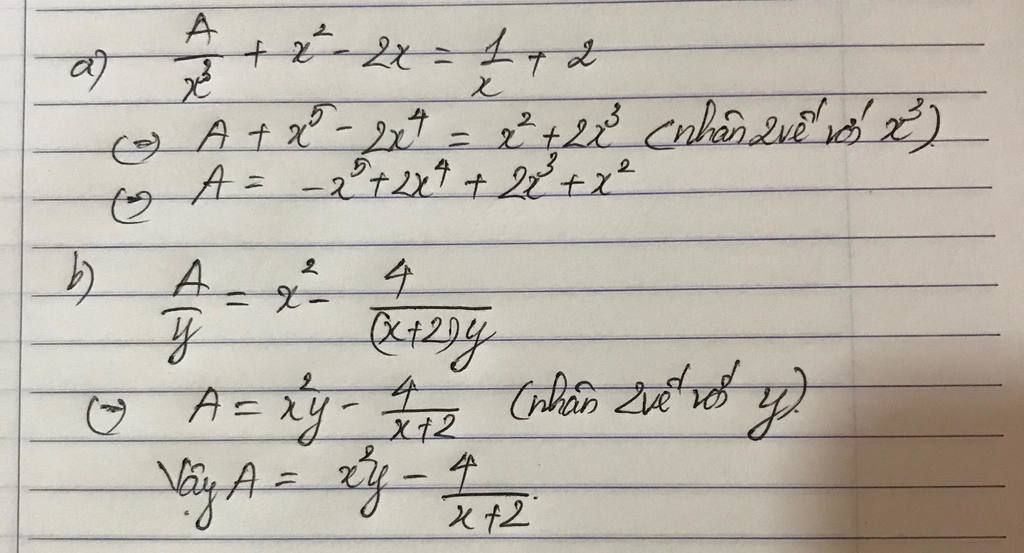 a) A/x³ + x² - 2x = 1/x + 2
(=) A + x⁵ - 2x⁴ = x² + 2x³ (nhân 2 vế với x³)
(=) A = -x⁵ + 2x⁴ + 2x³ + x²
b) A/y = x² - 4/(x+2)y
(=) A = x²y - 4/x+2 (nhân 2 vế với y).
Vậy A = x²y - 4/x+2.